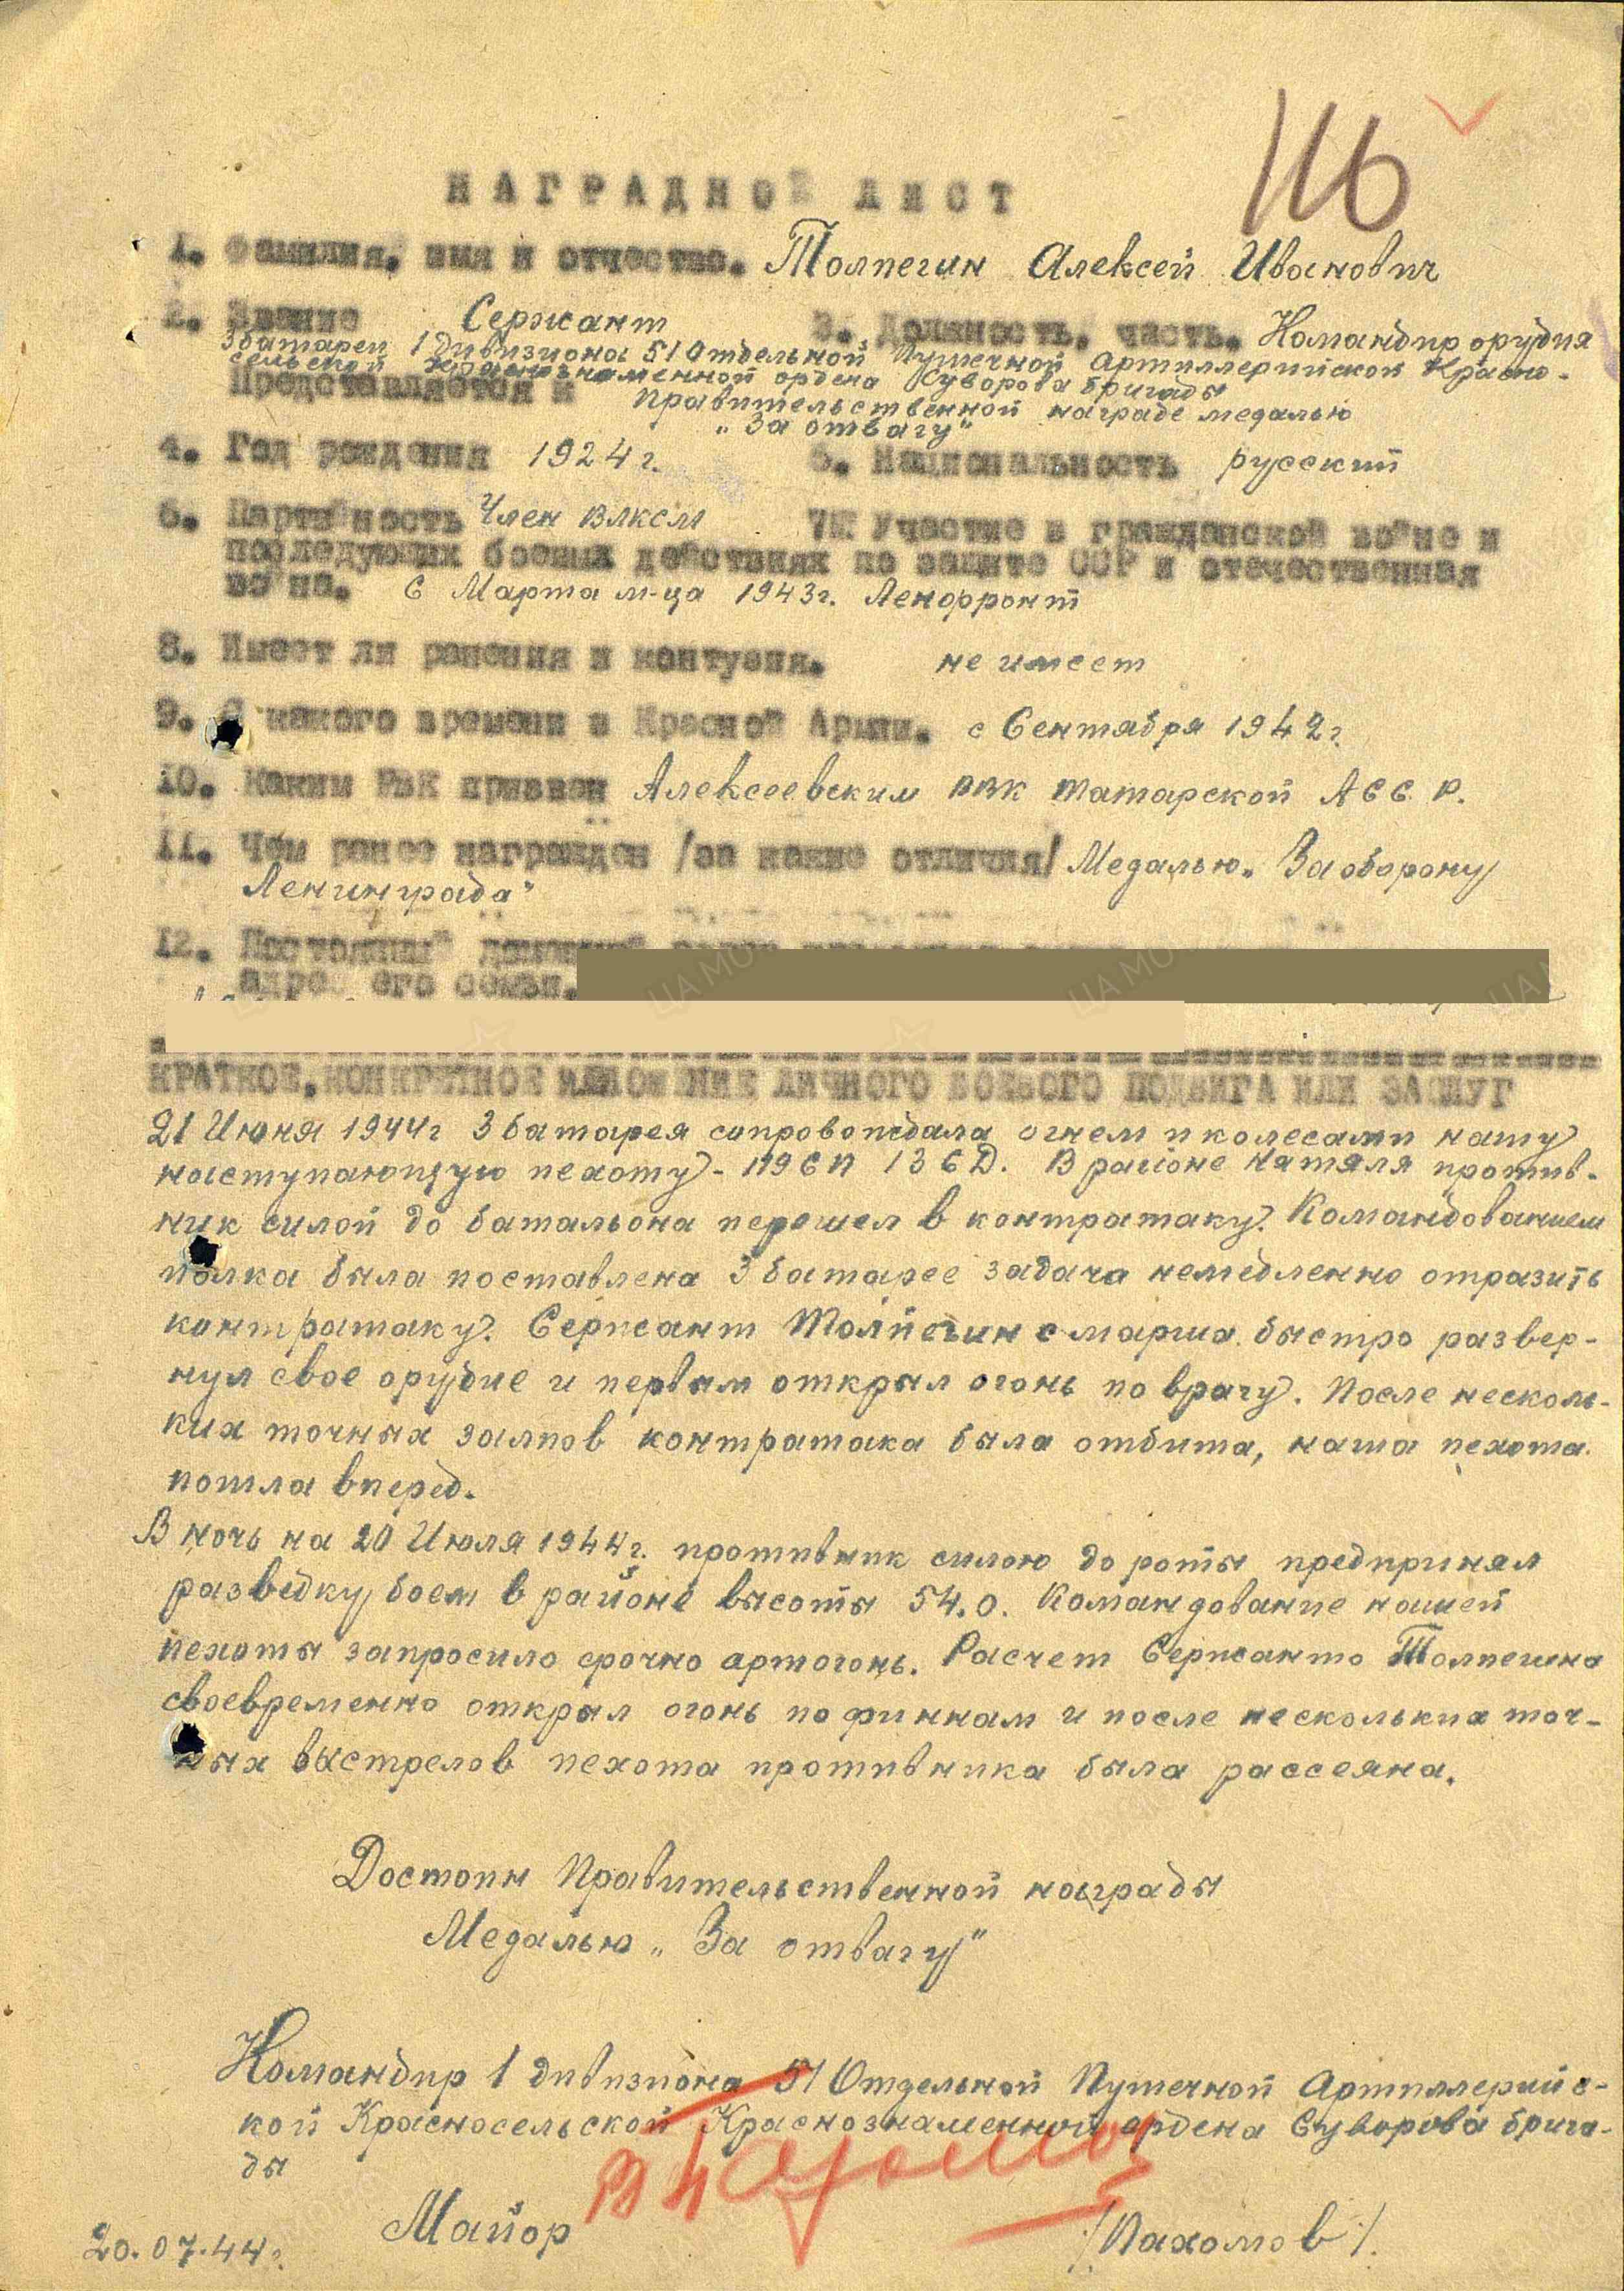 116
НАГРАДНОЙ ЛИСТ
1. Фамилия, имя и отчество. Толпегин Алексей Иванович
2. Звание Сержант 3. Должность, часть. Командир орудия
3 батареи 1 дивизиона 51 Отдельной Пушечной Артиллерийской Красно-
сельской Краснознаменной ордена Суворова бригады
Представляется к Правительственной награде медалью
„За отвагу"
4. Год рождения 1924 г. 5. Национальность русский
6. Партийность Член ВЛКСМ 7. Участие в гражданской войне и
последующих боевых действиях по защите СССР и отечественная
война. С Марта м-ца 1943г. Ленфронт
8. Имеет ли ранения и контузия. не имеет
9. С какого времени в Красной Армии. с Сентября 1942г.
10. Каким РВК призван Алексеевским РВК Татарской АССР.
11. Чем ранее награжден /за какие отличия/ Медалью „За оборону
Ленинграда"
12. Постоянный домашний
адрес его семьи.
КРАТКОЕ, КОНКРЕТНОЕ ИЗЛОЖЕНИЕ ЛИЧНОГО БОЕВОГО ПОДВИГА ИЛИ ЗАСЛУГ
21 Июня 1944г 3 батарея сопровождала огнем и колесами нашу
наступающую пехоту - 119 СП 13 СД. В районе Нятяля против-
ник силой до батальона перешел в контратаку. Командованием
полка была поставлена 3 батарее задача немедленно отразить
контратаку. Сержант Толпегин с марша быстро развер-
нул свое орудие и первым открыл огонь по врагу. После несколь-
ких точных залпов контратака была отбита, наша пехота
пошла вперед.
В ночь на 20 Июля 1944г. противник силою до роты предпринял
разведку боем в районе высоты 54.0. Командование нашей
пехоты запросило срочно артогонь. Расчет Сержанта Толпегина
своевременно открыл огонь по финнам и после нескольких точ-
ных выстрелов пехота противника была рассеяна.
Достоин Правительственной награды
Медалью „За отвагу"
Командир 1 дивизиона 51 Отдельной Пушечной Артиллерийс-
кой Красносельской Краснознаменной ордена Суворова брига-
ды
Майор /Пахомов/.
20.07.44г.